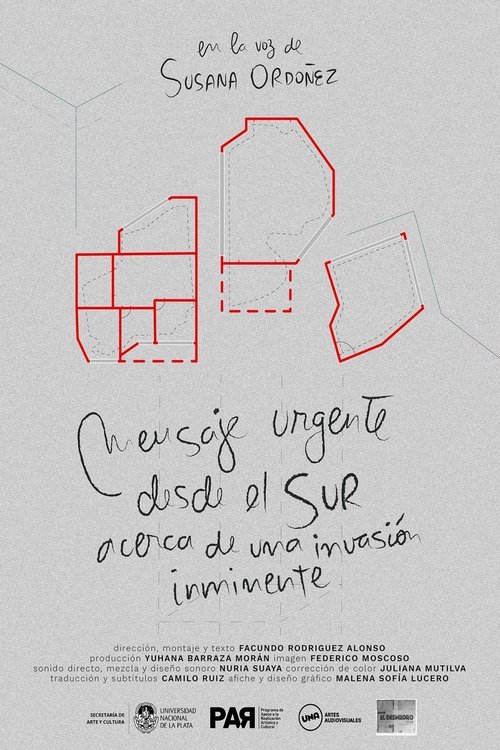 en la voz de
SUSANA ORDOÑEZ
mensaje urgente
desde el SUR
acerca de una invasión
inminente
dirección, montaje y texto FACUNDO RODRIGUEZ ALONSO
producción YUHANA BARRAZA MORÁN imagen FEDERICO MOSCOSO
sonido directo, mezcla y diseño sonoro NURIA SUAYA corrección de color JULIANA MUTILVA
traducción y subtítulos CAMILO RUIZ afiche y diseño gráfico MALENA SOFÍA LUCERO
SECRETARÍA DE
ARTE Y CULTURA
UNIVERSIDAD
NACIONAL
DE LA PLATA
PAR
Programa de
Apoyo a la
Realización
Artística y
Cultural
UNA
ARTES
AUDIOVISUALES
EL DESMEDRO